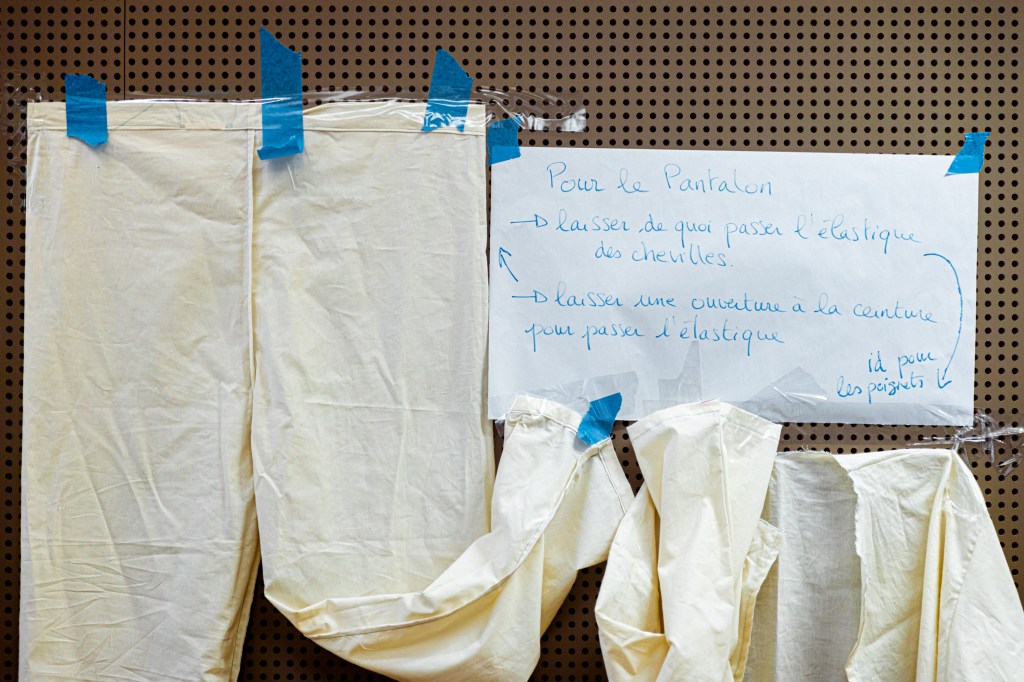 Pour le Pantalon
→ laisser de quoi passer l'élastique
des chevilles.
→ laisser une ouverture à la ceinture
pour passer l'élastique
id pour
les poignets